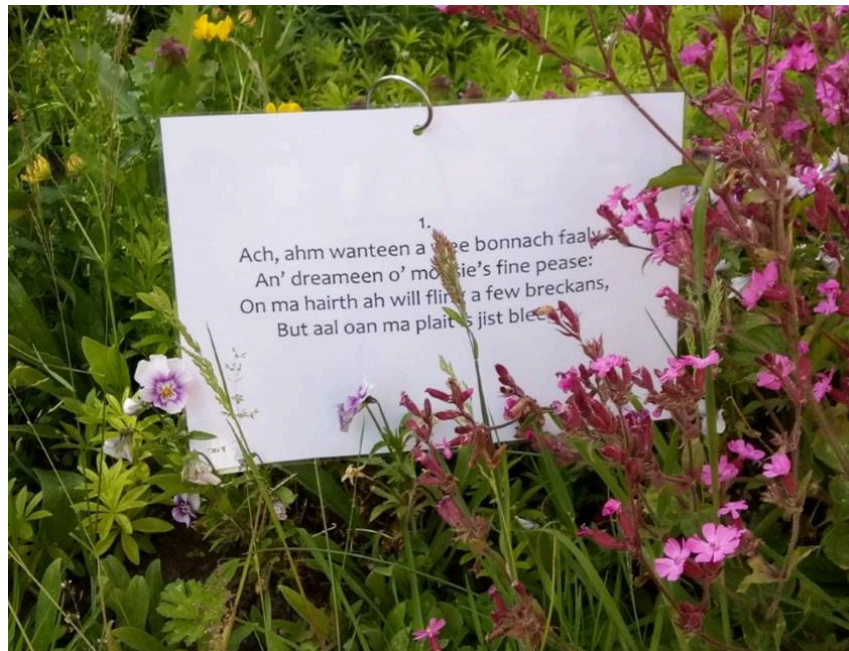 1.
Ach, ahm wanteen a wee bonnach faaly
An' dreameen o' mossie's fine pease:
On ma hairth ah will fling a few breckans,
But aal oan ma plait s jist